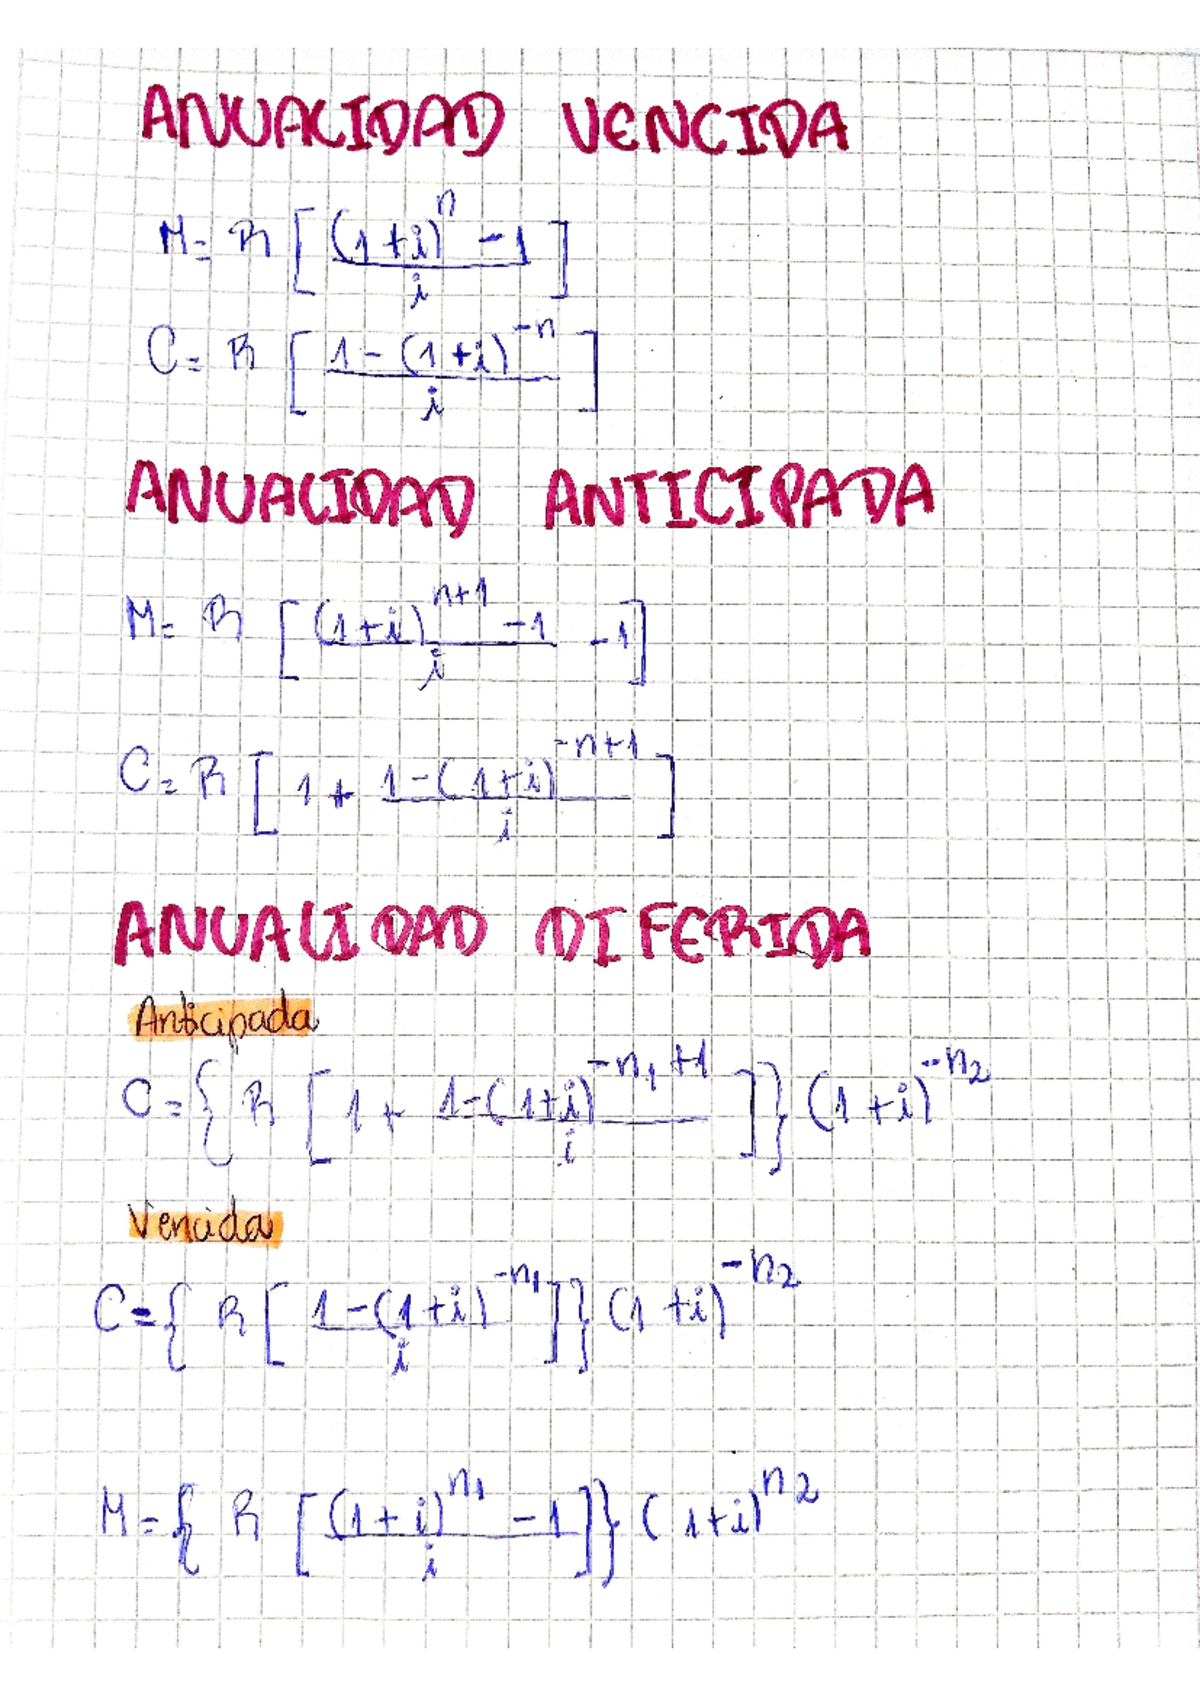 ANUALIDAD VENCIDA
M = R [ ((1+i)^n - 1) / i ]
C = R [ (1-(1+i)^-n) / i ]
ANUALIDAD ANTICIPADA
M = R [ ((1+i)^n+1 - 1) / i - 1 ]
C = R [ 1 + (1-(1+i)^-n+1) / i ]
ANUALIDAD DIFERIDA
Anticipada
C = { R [ 1 + (1-(1+i)^-n₁+1) / i ] } (1+i)^-n₂
Vencida
C = { R [ (1-(1+i)^-n₁) / i ] } (1+i)^-n₂
M = { R [ ((1+i)^n₁ - 1) / i ] } (1+i)^n₂